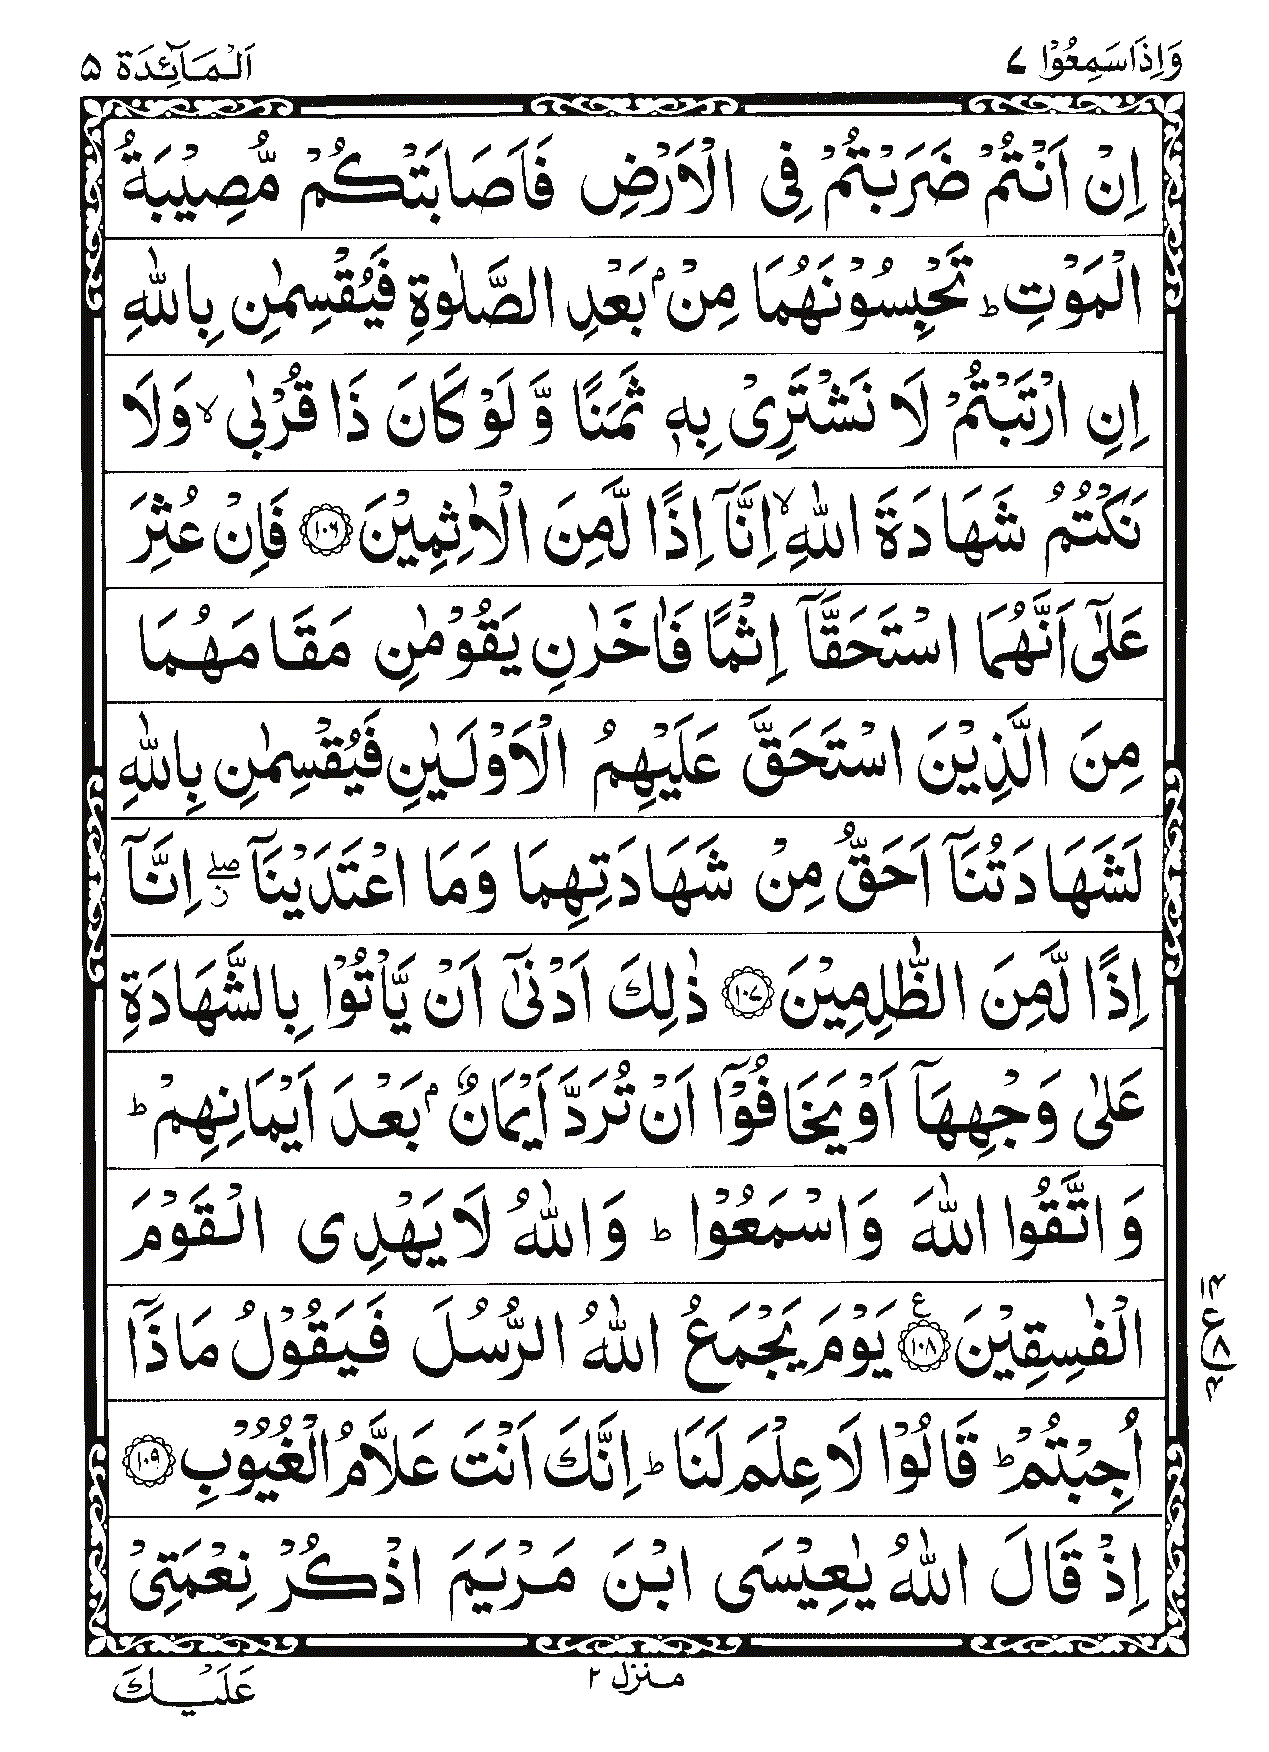 وَاِذَاسَمِعُوْا ٧ اَلْمَآئِدَة ٥
اِنْ اَنْتُمْ ضَرَبْتُمْ فِى الْاَرْضِ فَاَصَابَتْكُمْ مُّصِيْبَةُ
الْمَوْتِ ؕ تَحْبِسُوْنَهُمَا مِنْۢ بَعْدِ الصَّلٰوةِ فَيُقْسِمٰنِ بِاللّٰهِ
اِنِ ارْتَبْتُمْ لَا نَشْتَرِىْ بِهٖ ثَمَنًا وَّ لَوْ كَانَ ذَا قُرْبٰى ۙ وَلَا
نَكْتُمُ شَهَادَةَ اللّٰهِ ۙ اِنَّاۤ اِذًا لَّمِنَ الْاٰثِمِيْنَ ۝١٠٦ فَاِنْ عُثِرَ
عَلٰٓى اَنَّهُمَا اسْتَحَقَّاۤ اِثْمًا فَاٰخَرٰنِ يَقُوْمٰنِ مَقَامَهُمَا
مِنَ الَّذِيْنَ اسْتَحَقَّ عَلَيْهِمُ الْاَوْلَيٰنِ فَيُقْسِمٰنِ بِاللّٰهِ
لَشَهَادَتُنَاۤ اَحَقُّ مِنْ شَهَادَتِهِمَا وَمَا اعْتَدَيْنَاۤ ۖ اِنَّاۤ
اِذًا لَّمِنَ الظّٰلِمِيْنَ ۝١٠٧ ذٰلِكَ اَدْنٰٓى اَنْ يَّاْتُوْا بِالشَّهَادَةِ
عَلٰى وَجْهِهَاۤ اَوْ يَخَافُوْۤا اَنْ تُرَدَّ اَيْمَانٌۢ بَعْدَ اَيْمَانِهِمْ ؕ
وَاتَّقُوا اللّٰهَ وَاسْمَعُوْا ؕ وَاللّٰهُ لَا يَهْدِى الْقَوْمَ
الْفٰسِقِيْنَ ۝١٠٨ ع يَوْمَ يَجْمَعُ اللّٰهُ الرُّسُلَ فَيَقُوْلُ مَاذَاۤ
اُجِبْتُمْ ؕ قَالُوْا لَا عِلْمَ لَنَا ؕ اِنَّكَ اَنْتَ عَلَّامُ الْغُيُوْبِ ۝١٠٩
اِذْ قَالَ اللّٰهُ يٰعِيْسَى ابْنَ مَرْيَمَ اذْكُرْ نِعْمَتِىْ
منزل ٢
عَلَيْكَ